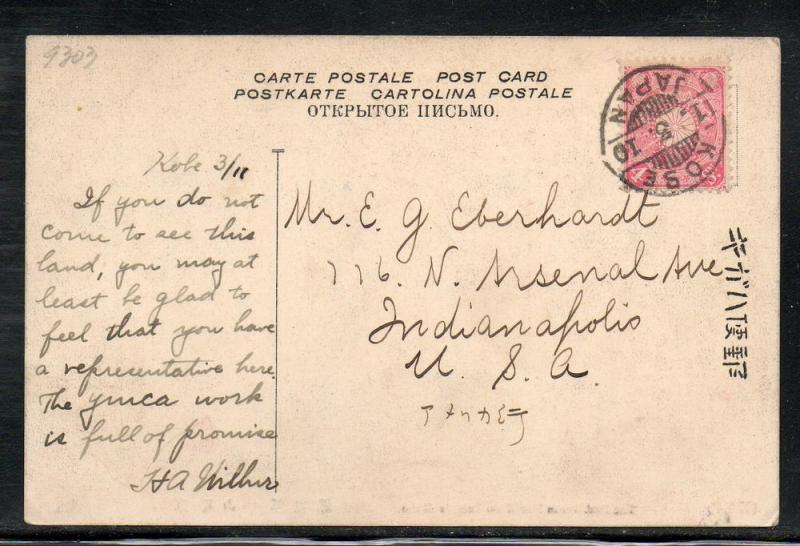 9303
CARTE POSTALE POST CARD
POSTKARTE CARTOLINA POSTALE
ОТКРЫТОЕ ПИСЬМО.
KOBE
JAPAN
11.3.10
4
Kobe 3/11
If you do not
come to see this
land, you may at
least be glad to
feel that you have
a representative here.
The YMCA work
is full of promise
HA Wilbur
Mr. E. G. Eberhardt
776. N. Arsenal Ave
Indianapolis
U. S. A.
アメリカ